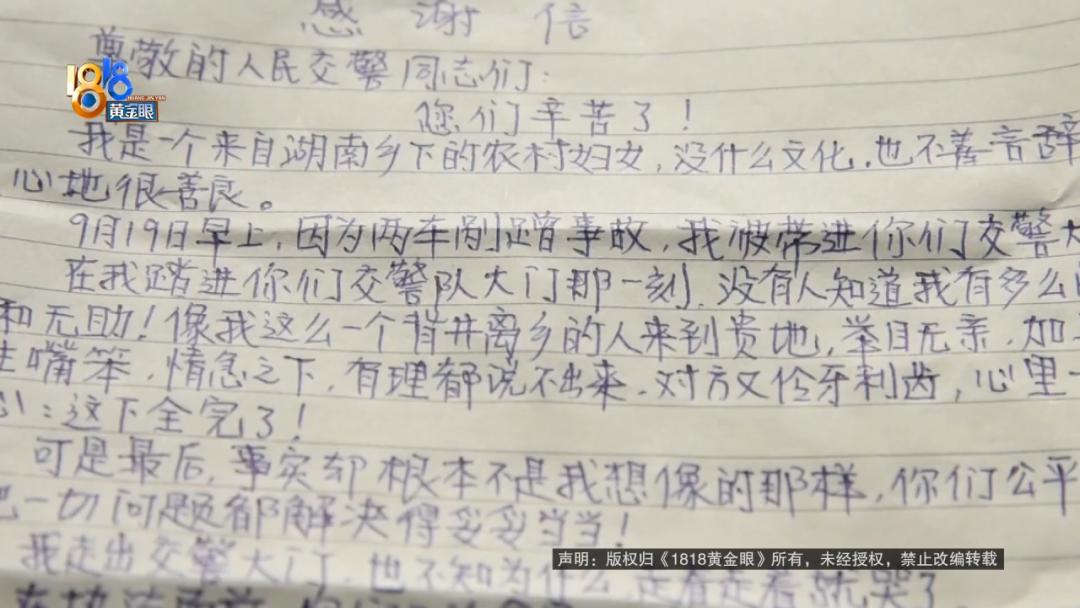 感谢信
尊敬的人民交警同志们：
您们辛苦了！
我是一个来自湖南乡下的农村妇女，没什么文化，也不善言辞
心地很善良。
9月19日早上，因为两车剐蹭事故，我被带进你们交警大
在我踏进你们交警队大门那一刻，没有人知道我有多么
和无助！像我这么一个背井离乡的人来到贵地，举目无亲，加
嘴笨，情急之下，有理都说不出来，对方又伶牙利齿，心里一
：这下全完了！
可是最后，事实却根本不是我想像的那样，你们公平
一切问题都解决得妥妥当当！
我走出交警大门，也不知为什么，走着走着就哭了
1818
黄金眼
声明：版权归《1818黄金眼》所有，未经授权，禁止改编转载